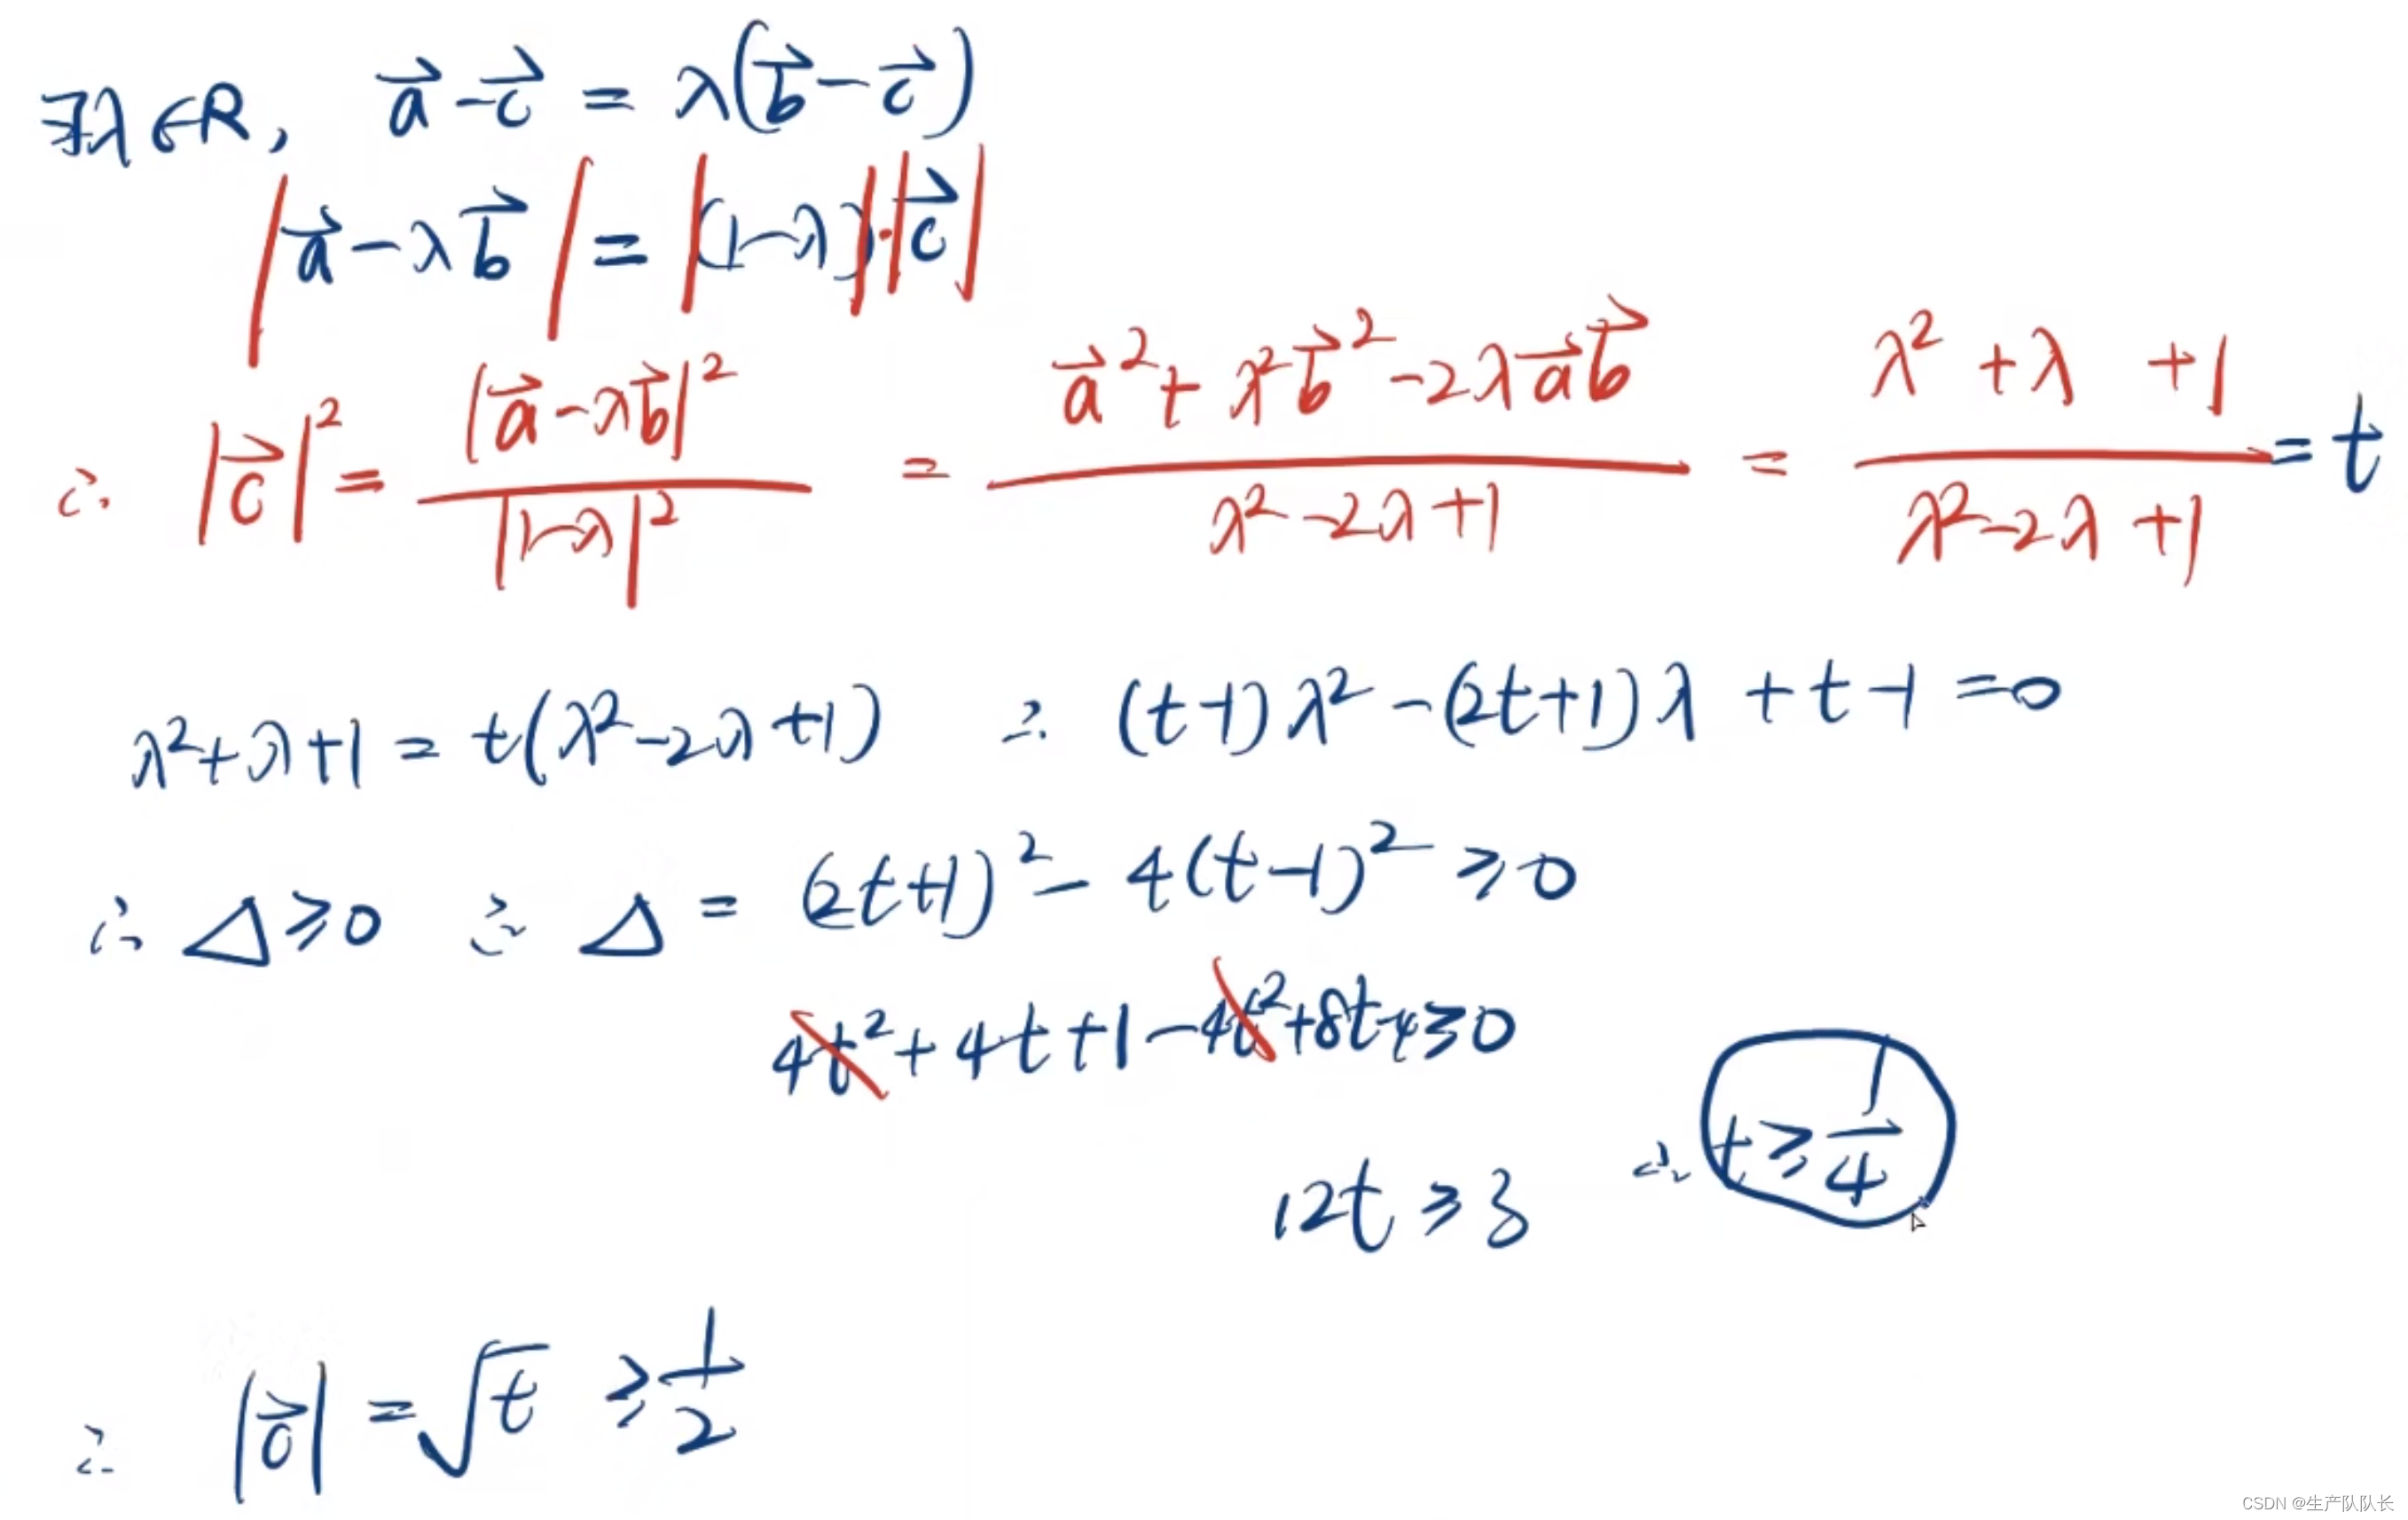 ∃λ∈R, a⃗ - c⃗ = λ(b⃗ - c⃗)
|a⃗ - λb⃗| = |(1-λ)|·|c⃗|
∴ |c⃗|² = |a⃗ - λb⃗|² / |1-λ|² = (a⃗² + λ²b⃗² - 2λa⃗b⃗) / (λ² - 2λ + 1) = (λ² + λ + 1) / (λ² - 2λ + 1) = t
λ² + λ + 1 = t(λ² - 2λ + 1) ∴ (t-1)λ² - (2t+1)λ + t - 1 = 0
∴ Δ ≥ 0 ∴ Δ = (2t+1)² - 4(t-1)² ≥ 0
4t² + 4t + 1 - 4t² + 8t - 4 ≥ 0
12t ≥ 3 ∴ t ≥ 1/4
∴ |c⃗| = √t ≥ 1/2
CSDN @生产队队长